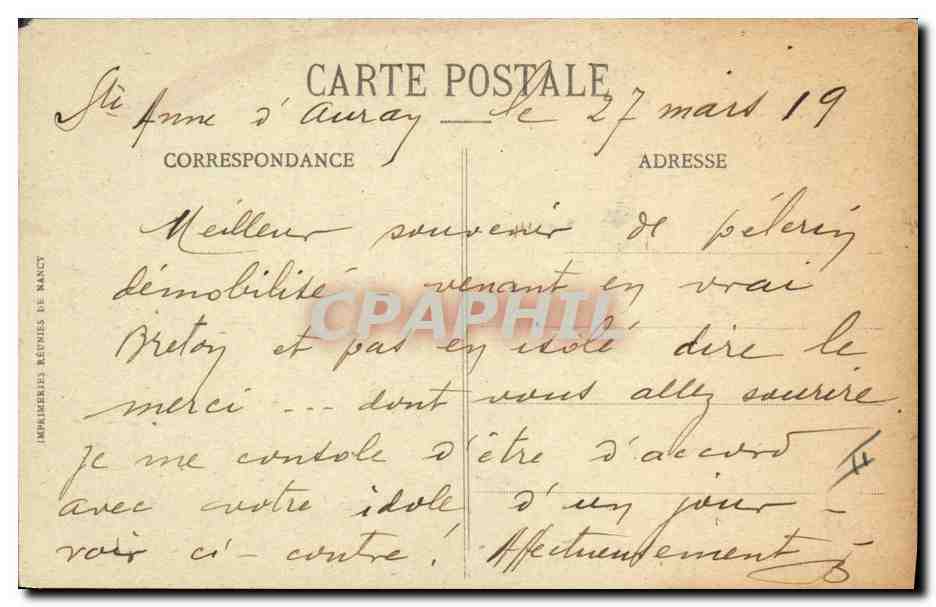 CARTE POSTALE
Ste Anne d'Auray — le 27 mars 19
CORRESPONDANCE
ADRESSE
Meilleur souvenir de pélerin
démobilisé, venant en vrai
Breton et pas en isolé dire le
merci ... dont vous allez sourire.
Je me console d'être d'accord
avec votre idole d'un jour —
voir ci-contre! Affectueusement
IMPRIMERIES RÉUNIES DE NANCY
CPAPHIL